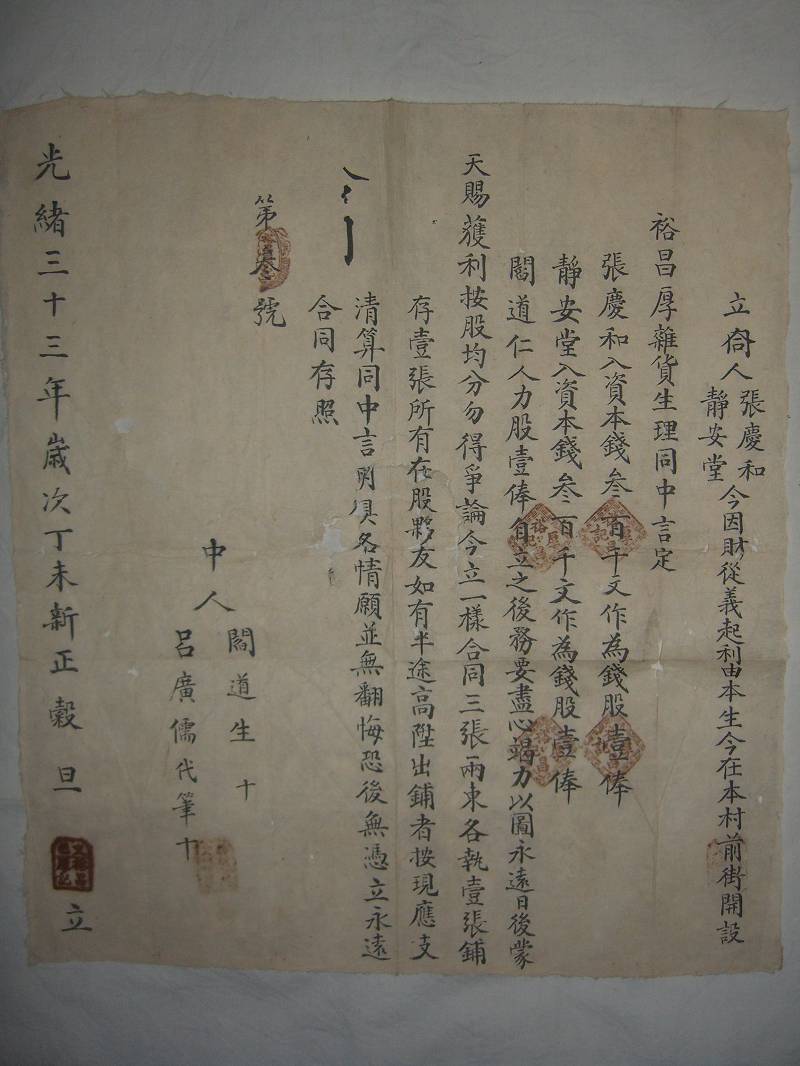 立合同人張慶和靜安堂今因財從義起利由本生今在本村前街開設
裕昌厚雜貨生理同中言定
張慶和入資本錢叄百千文作為錢股壹俸
靜安堂入資本錢叄百千文作為錢股壹俸
閻道仁人力股壹俸自立之後務要盡心竭力以圖永遠日後蒙
天賜獲利按股均分勿得爭論今立一樣合同三張兩東各執壹張鋪
存壹張所有在股夥友如有半途高陞出鋪者按現應支
清算同中言明俱各情願並無翻悔恐後無憑立永遠
合同存照
第叄號
中人 閻道生 十
呂廣儒代筆十
光緒三十三年歲次丁未新正穀旦 立